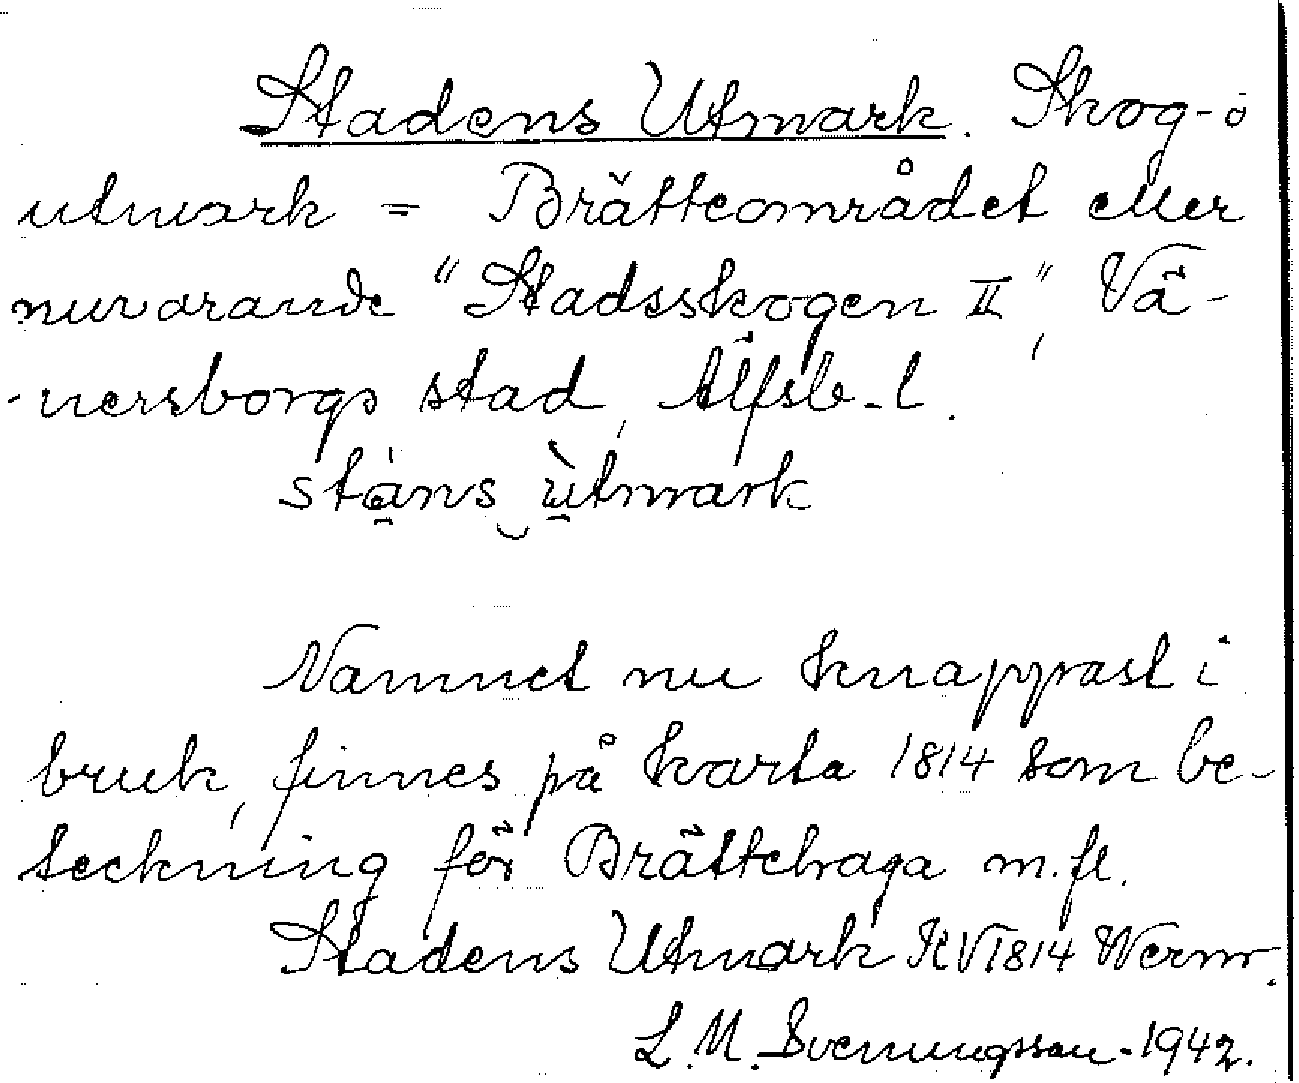 Stadens Utmark. Skog- o
utmark = Brätteområdet eller
nuvarande "Stadsskogen II", Vä-
-nersborgs stad, Älfsb-l.
stàns ùtmark
Namnet nu knappast i
bruk, finnes på karta 1814 som be-
teckning för Brättehaga m.fl.
Stadens Utmark KV 1814 Werm.
L.M. Svenungsson - 1942.